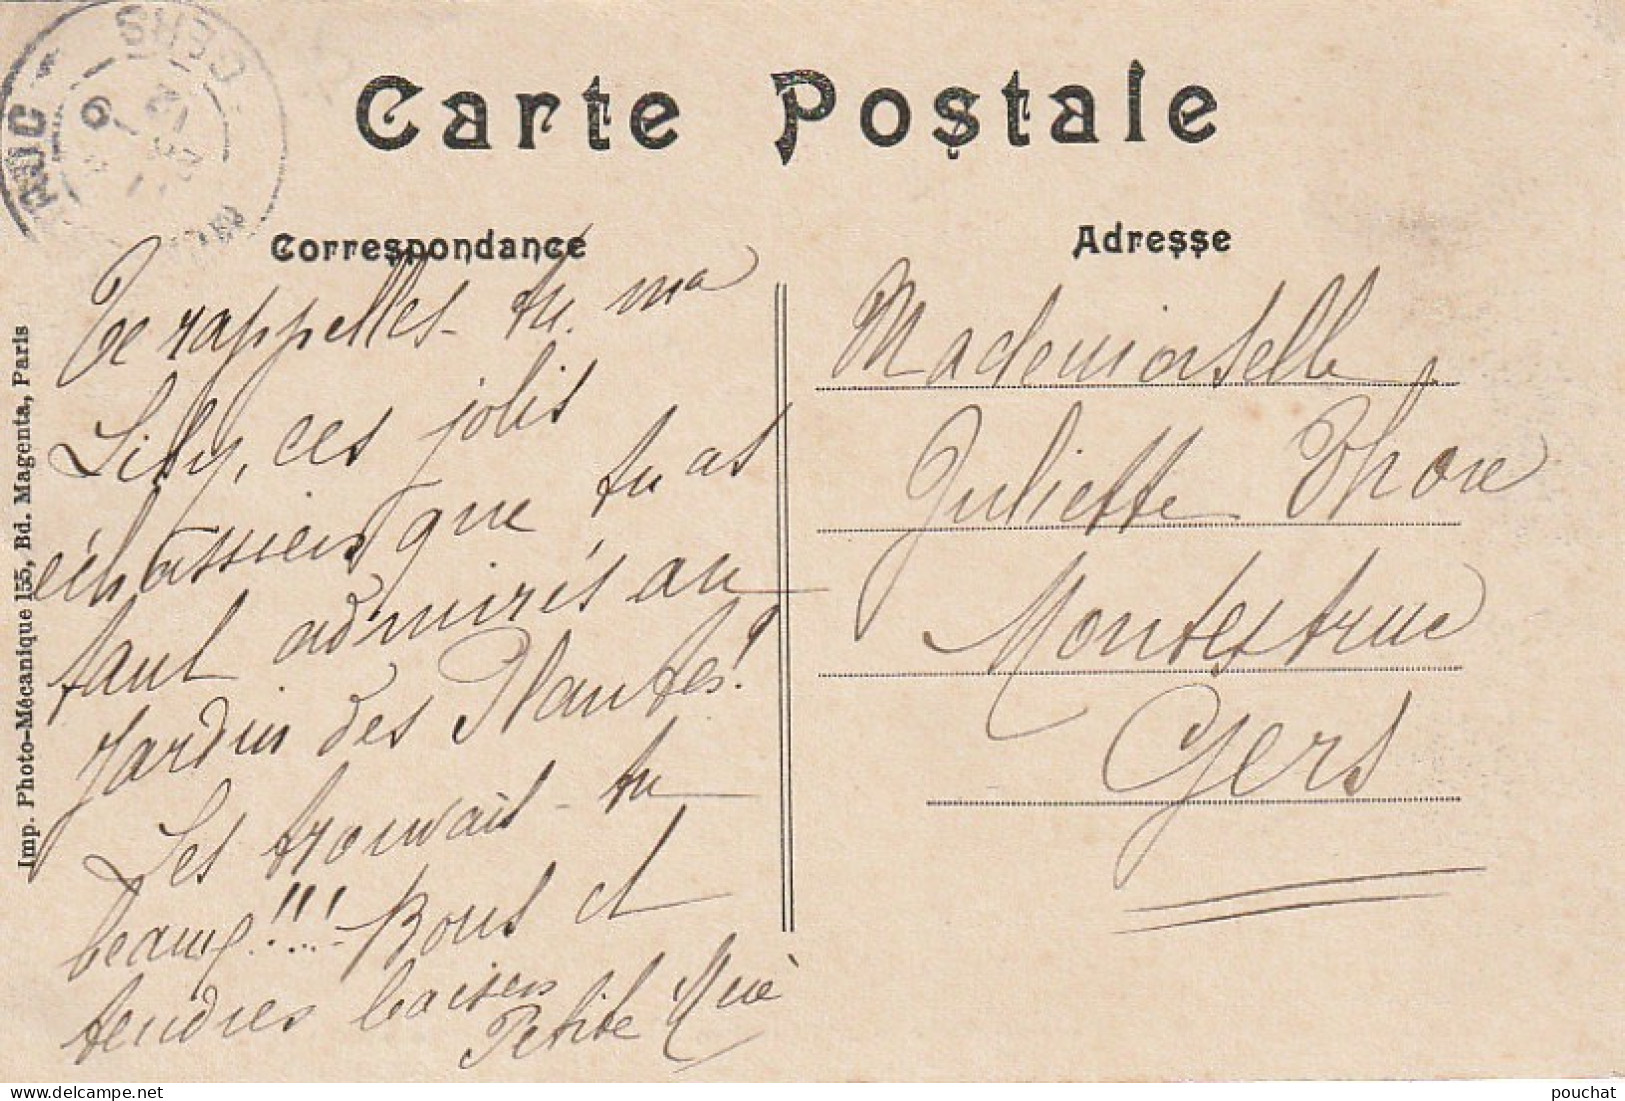 Carte Postale
Correspondance
Te rappelles-tu. ma
Lily, ces jolis
échassiers que tu as
tant admirés au
Jardin des Plantes!
Les trouvais-tu
beaux!!!- Bons et
tendres baisers
Petite
Adresse
Mademoiselle
Juliette Thore
Montestruc
Gers
Imp. Photo-Mécanique 155, Bd. Magenta, Paris
GERS
pouchat